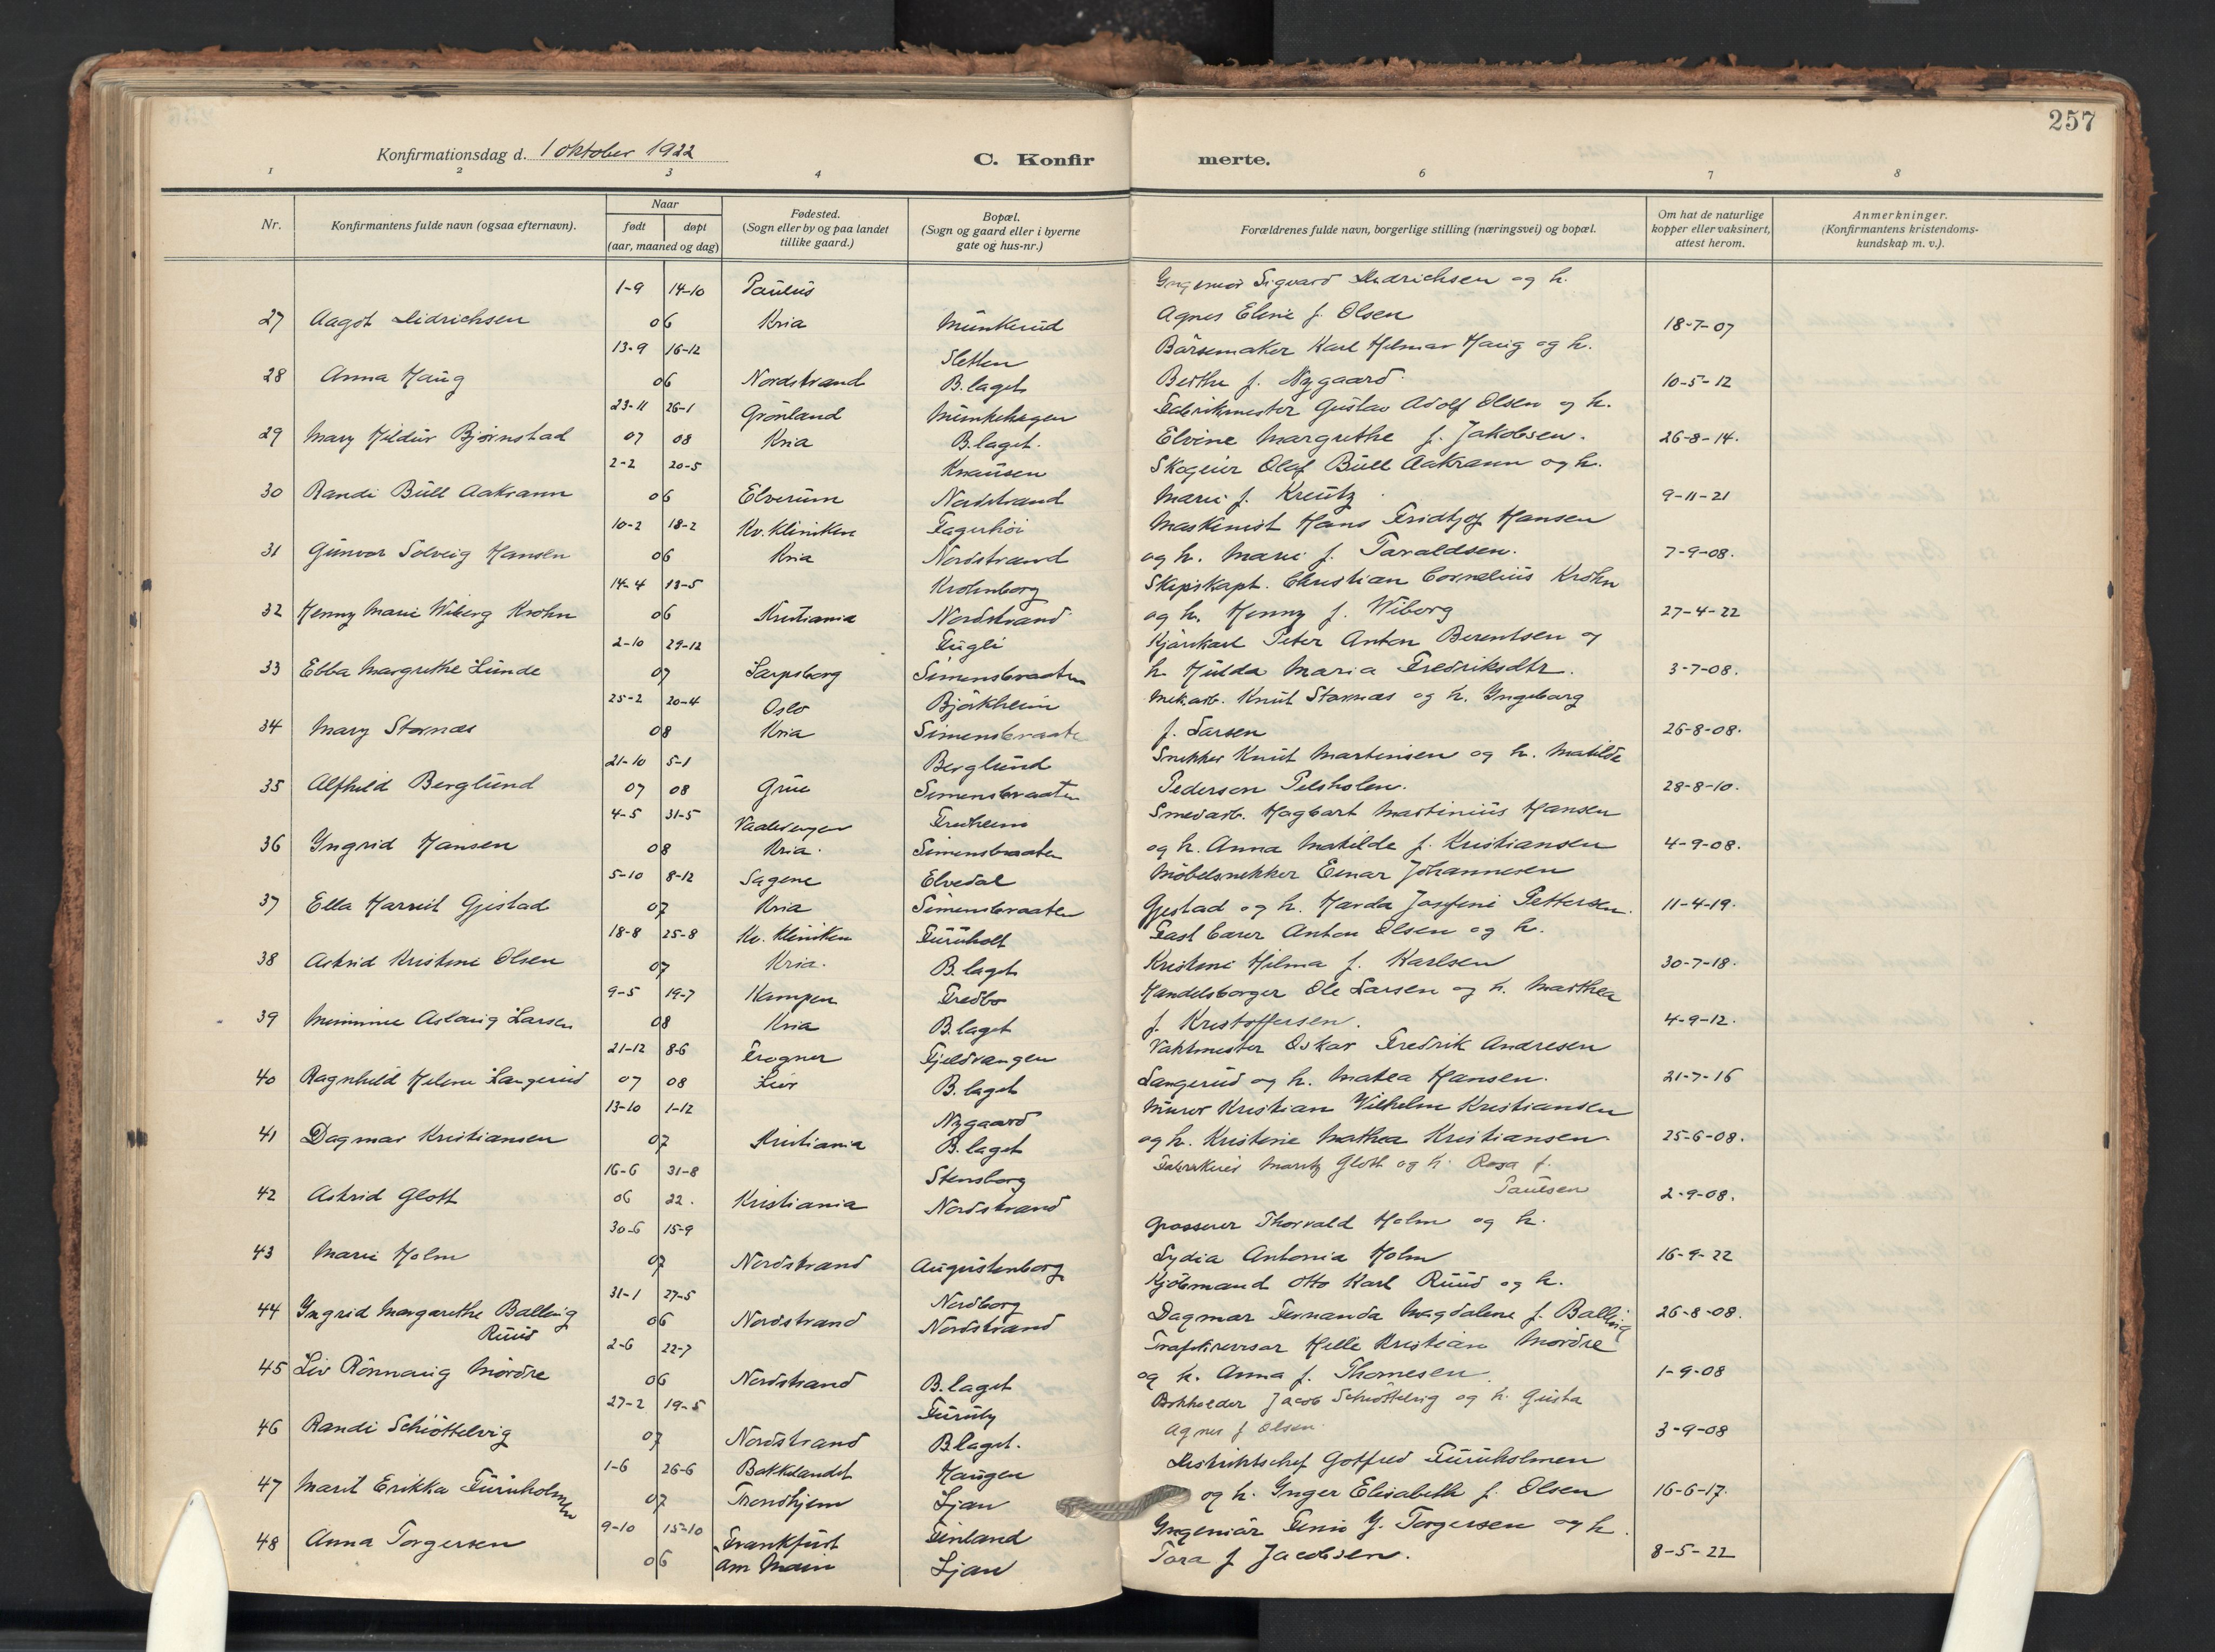 257
Konfirmationsdag d. 1 oktober 1922
C. Konfirmerte.
1 2 3 4 6 7 8
Nr.
Konfirmantens fulde navn (ogsaa efternavn).
Naar
født døpt
(aar, maaned og dag)
Fødested.
(Sogn eller by og paa landet
tillike gaard.)
Bopæl.
(Sogn og gaard eller i byerne
gate og hus-nr.)
Forældrenes fulde navn, borgerlige stilling (næringsvei) og bopæl.
Om hat de naturlige
kopper eller vaksinert,
attest herom.
Anmerkninger.
(Konfirmantens kristendoms-
kundskap m. v.).
1-9 14-10 Paulus Ingeniør Sigvard Didrichsen og h.
27 Aagot Didrichsen 06 Kria Munkerud Agnes Eline f. Olsen 18-7-07
13-9 16-12 Sletten Børsemaker Karl Hilmar Haug og h.
28 Anna Haug 06 Nordstrand B.laget Berthe f. Nygaard. 10-5-12
23-11 26-1 Grønland Munkehagen Fabrikmester Gustav Adolf Olsen og h.
29 Mary Hildur Bjørnstad 07 08 Kria B.laget. Elvine Margrethe f. Jakobsen. 26-8-14.
2-2 20-5 Knausen Skogeier Olaf Bull Aakrann og h.
30 Randi Bull Aakrann 06 Elverum Nordstrand Marie f. Kreutz. 9-11-21
10-2 18-2 Kv. kliniken Fagerhøi Maskinist Hans Fridtjof Hansen
31 Gunvor Solveig Hansen 06 Kria Nordstrand og h. Marie f. Taraldsen. 7-9-08.
14-4 13-5 Krohnborg Skipskapt. Christian Cornelius Krohn
32 Henny Marie Wiberg Krohn 06 Kristiania Nordstrand og h. Henny f. Wiborg 27-4-22
2-10 29-12 Fugli Kjørekarl Peter Anton Berentsen og
33 Ebba Margrethe Lunde 07 Sarpsborg Simensbraaten h. Hulda Maria Fredriksdtr. 3-7-08.
25-2 20-4 Oslo Bjørkheim Mek.arb. Knut Stornæs og h. Ingeborg
34 Mary Stornæs 08 Kria Simensbraate f. Larsen 26-8-08.
21-10 5-1 Berglund Snekker Knut Martinsen og h. Matilde
35 Alfhild Berglund 07 08 Grue Simensbraaten Pedersen Pelsholen. 28-8-10.
4-5 31-5 Vaalerengen Fredheim Smedarb. Hagbart Martinius Hansen
36 Yngrid Hansen 08 Kria. Simensbraaten og h. Anna Matilde f. Kristiansen 4-9-08.
5-10 8-12 Sagene Elvedal Møbelsnekker Einar Johannesen
37 Ella Harriet Gjestad 07 Kria Simensbraaten Gjestad og h. Harda Josefine Pettersen. 11-4-19.
18-8 25-8 Kv. kliniken Furuholt Anton Olsen og h.
38 Astrid Kristine Olsen 07 Kria. B.laget Kristine Hilma f. Karlsen 30-7-18.
9-5 19-7 Kampen Fredbo Handelsborger Ole Larsen og h. Marthea
39 Mimmie Aslaug Larsen 08 Kria B.laget f. Kristoffersen. 4-9-12.
21-12 8-6 Frogner Fjeldvangen Vaktmester Oskar Fredrik Andresen
40 Ragnhild Helene Langerud 07 08 Lier B.laget Langerud og h. Matea Hansen. 21-7-16
13-10 1-12 Nygaard Murer Kristian Vilhelm Kristiansen
41 Dagmar Kristiansen 07 Kristiania B.laget og h. Kristine Mathea Kristiansen. 25-6-08.
16-6 31-8 Stensborg Fabrikeier Moritz Glott og h. Rosa f.
42 Astrid Glott 06 22. Kristiania Nordstrand Paulsen 2-9-08.
30-6 15-9 Grosserer Thorvald Holm og h.
43 Marie Holm 07 Nordstrand Augustenborg Lydia Antonia Holm 16-9-22
31-1 27-5 Nordborg Kjøbmand Otto Karl Ruud og h.
44 Yngrid Margarethe Balling Ruud 06 Nordstrand Nordstrand Dagmar Fernanda Magdalene f. Balling 26-8-08.
2-6 22-7 Helle Kristian Mørdre
45 Liv Rønnaug Mørdre 06 Nordstrand B.laget og h. Anna f. Thomesen. 1-9-08
27-2 19-5 Furuly Bokholder Jacob Schiøttelvig og h. Gusta
46 Randi Schiøttelvig 07 Nordstrand B.laget. Agnes f Olsen. 3-9-08
1-6 26-6 Bakkelandet Haugen Distriktschef Gotfred Furuholmen
47 Marit Erikka Furuholmen 07 Trondhjem Ljan og h. Inger Elisabeth f. Olsen 16-6-17.
9-10 15-10 Frankfurt Finland Ingeniør Y. Torgersen og h.
48 Anna Torgersen 06 am Main Ljan Tora f Jacobsen. 8-5-22